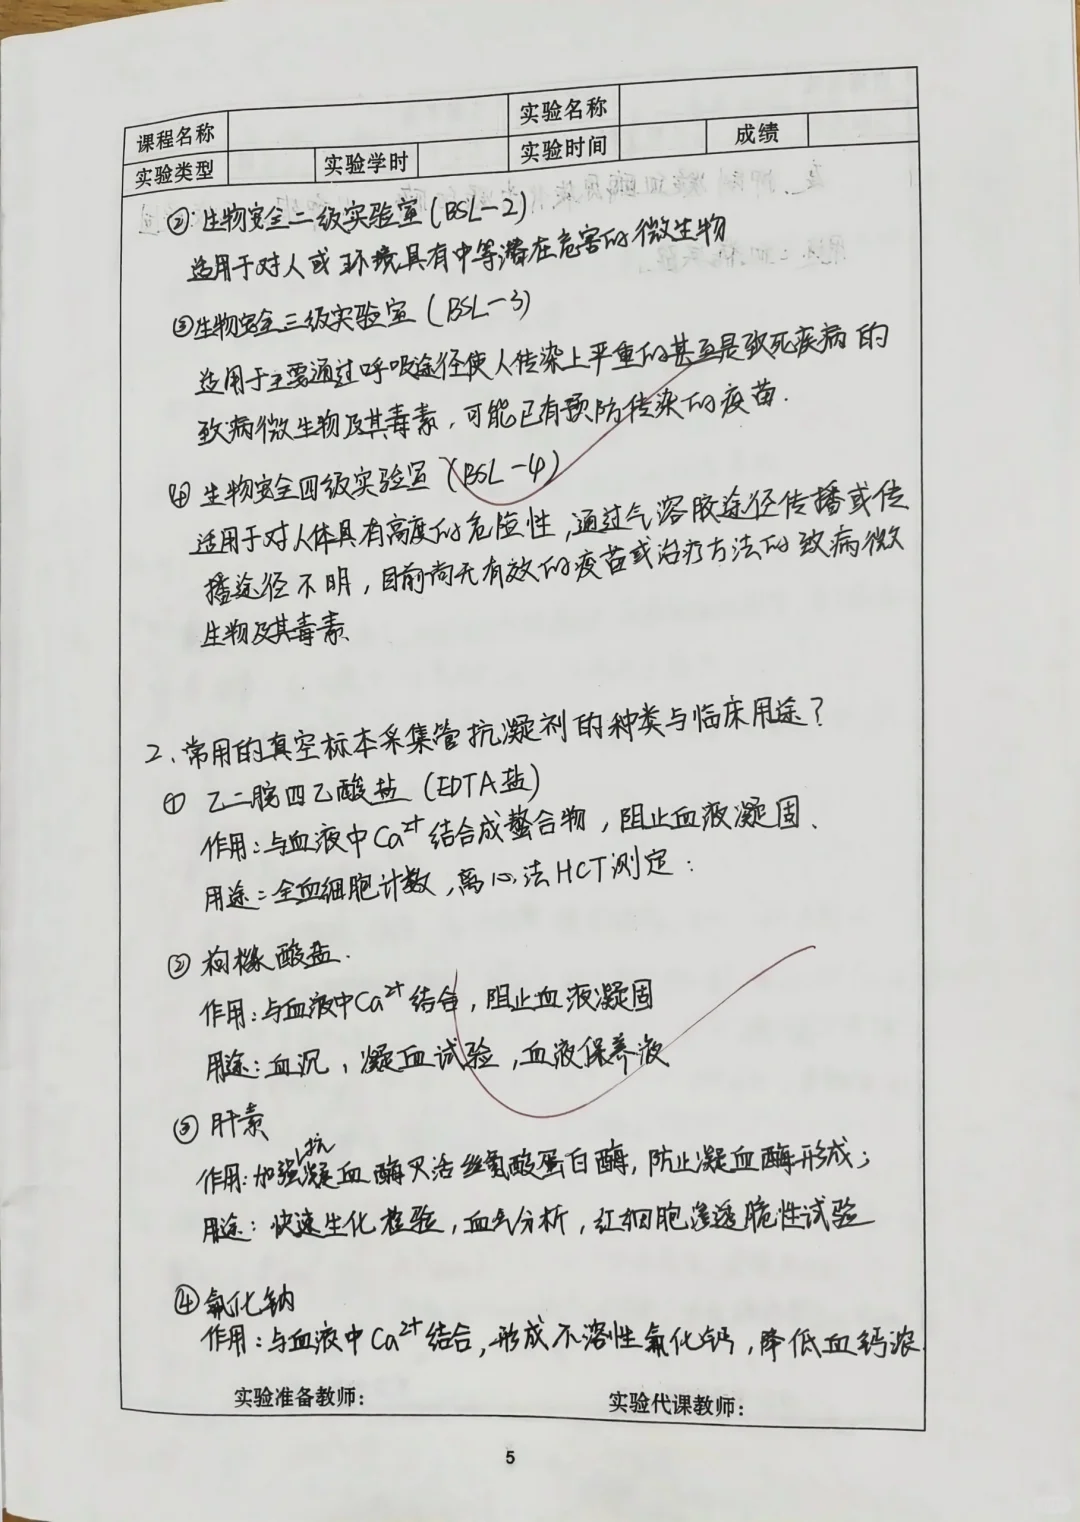 课程名称 实验名称
实验类型 实验学时 实验时间 成绩
②生物安全二级实验室(BSL-2)
适用于对人或环境具有中等潜在危害的微生物
③生物安全三级实验室(BSL-3)
适用于主要通过呼吸途径使人传染上严重的甚至是致死疾病的
致病微生物及其毒素,可能已有预防传染的疫苗.
④生物安全四级实验室(BSL-4)
适用于对人体具有高度的危险性,通过气溶胶途径传播或传
播途径不明,目前尚无有效的疫苗或治疗方法的致病微
生物及其毒素、
2、常用的真空标本采集管抗凝剂的种类与临床用途?
① 乙二胺四乙酸盐(EDTA盐)
作用:与血液中Ca²⁺结合成螯合物,阻止血液凝固、
用途:全血细胞计数,离心法HCT测定:
② 枸橼酸盐.
作用:与血液中Ca²⁺结合,阻止血液凝固
用途:血沉,凝血试验,血液保养液
③ 肝素
作用:加强抗凝血酶灭活丝氨酸蛋白酶,防止凝血酶形成;
用途:快速生化检验,血气分析,红细胞渗透脆性试验
④氟化钠
作用:与血液中Ca²⁺结合,形成不溶性氟化钙,降低血钙浓
实验准备教师: 实验代课教师:
5